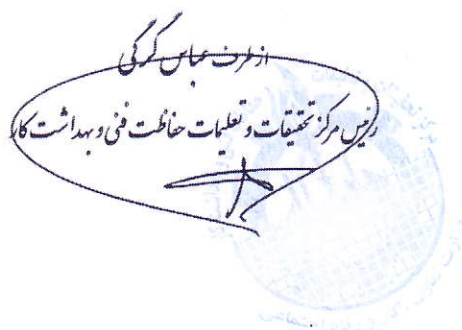 از طرف عباس گرکی
رئیس مرکز تحقیقات و تعلیمات حفاظت فنی و بهداشت کار